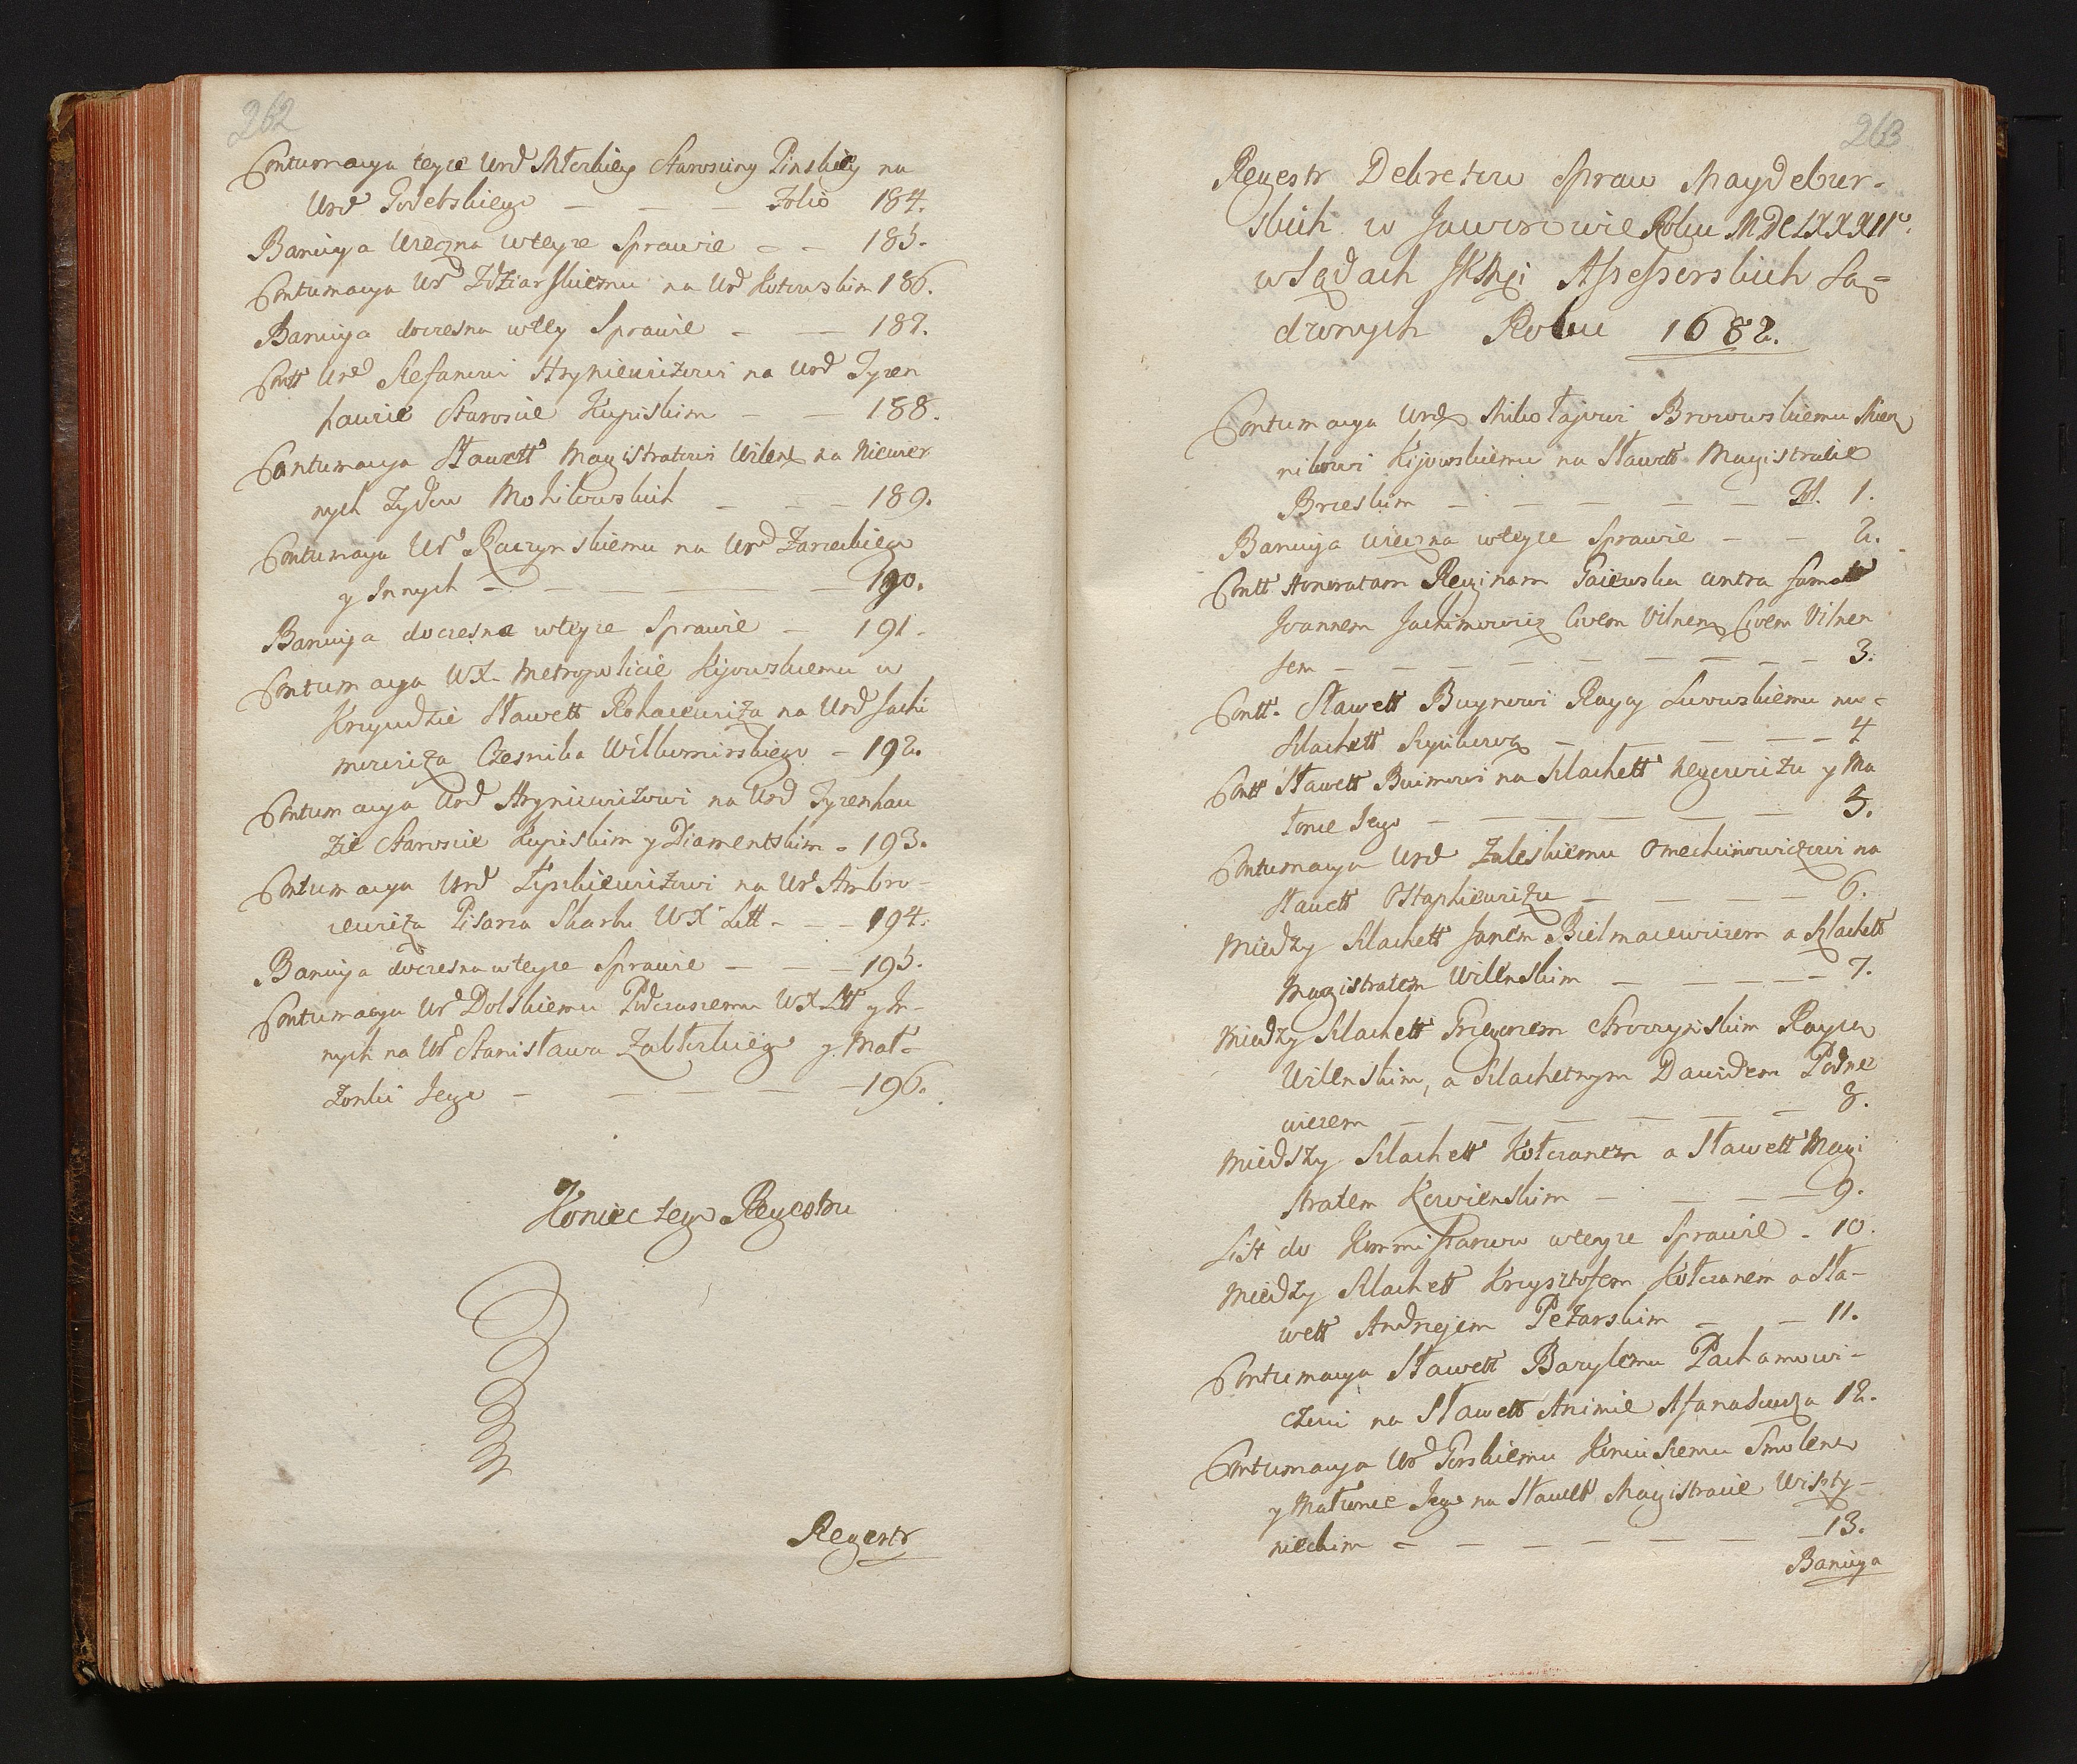 262
Contumacya teyze Urd Starosciny Pinskiey na
Urd Podebskiego — — — Folio 184.
Bannicya wieczna wteyze Sprawie — — 185.
Contumacya Ur Zdziarskiemu na Ur Kotowskim 186.
Bannicya doczesna wtey Sprawie — — 187.
Contt Urd Stefanowi Hryniewiczowi na Urd Tyzen
hauzie Staroscie Kupiskim — — 188.
Contumacya Sławett Magistratowi Wilen na Niewier
nych Zydow Mohilowskich — — — 189.
Contumacya Ur Raczynskiemu na Urd Zareckiego
y Innych — — — — — 190.
Bannicya doczesna wteyze Sprawie — 191.
Contumacya WX. Metropolicie Kijowskiemu w
Krzywdzie Sławett Rohacewicza na Urd Jachi
mowicza Czesnika Wilkomirskiego — 192.
Contumacya Urd Hryniewiczowi na Urd Tyzenhau
zie Staroscie Kupiskim y Diamentskim — 193.
Contumacya Urd Łyszkiewiczowi na Ur Ambro-
cewicza Pisarza Skarbu WX Litt — — — 194.
Bannicya doczesna wteyze Sprawie — — — 195.
Contumacya Ur Dolskiemu Podczaszemu WX Litt y In-
nych na Ur Stanisława y Mał-
zonki Jego — — — — — 196.
Koniec tego Regestru
Regestr
263
Regestr Dekretow Spraw Maydebur-
skich w Jaworowie Roku MDCLXXXIIo.
w Sądach JKMci Assessorskich Są-
dzonych Roku 1682.
Contumacya Urd Mikołajowi Brzozowskiemu Mien
nikowi Kijowskiemu na Sławett Magistracie
Brzeskim — — — — — Fol. 1.
Bannicya wieczna wteyze Sprawie — — 2.
Contt Honoratam Reginam Gaiewska contra Famatt
Joannem Jachimowicz Civem Vilnen Civem Vilnen
sem — — — — — — — — 3.
Contt. Sławett Buynowi Raycy Lwowskiemu na-
Szlachett — — — — — 4
Contt Sławett Buimowi na Szlachett y Ma
łonce Jego — — — — — — 5.
Contumacya Urd Zaleskiemu Omechinowiczowi na
Sławett Ostaphiewiczu — — — — 6.
Miedzy Szlachett Janem Bielmacewiczem a Szlachett
Magistratem Wilenskim — — — — 7.
Miedzy Szlachett Trzewiczem Raycą
Wilenskim, a Szlachetnym Dawidem Podne
wiczem — — — — — — — 8.
Miedszy Szlachett Kołczanem a Sławett Magi
stratem Kowienskim — — — — 9.
List do Kommissarzow wteyze Sprawie — 10.
Miedzy Szlachett Krzysztofem Kołczanem a Sła-
wett Andrzejem Petarskim — — 11.
Contumacya Sławett Barylemu Pachomowi-
czowi na Sławett Animie Afanasewicza 12.
Contumacya Ur Gorskiemu Koniuszemu Smolens
y Małzonce Jego na Sławett Magistracie Wiszty-
nieckim — — — — — — 13.
Bannicya